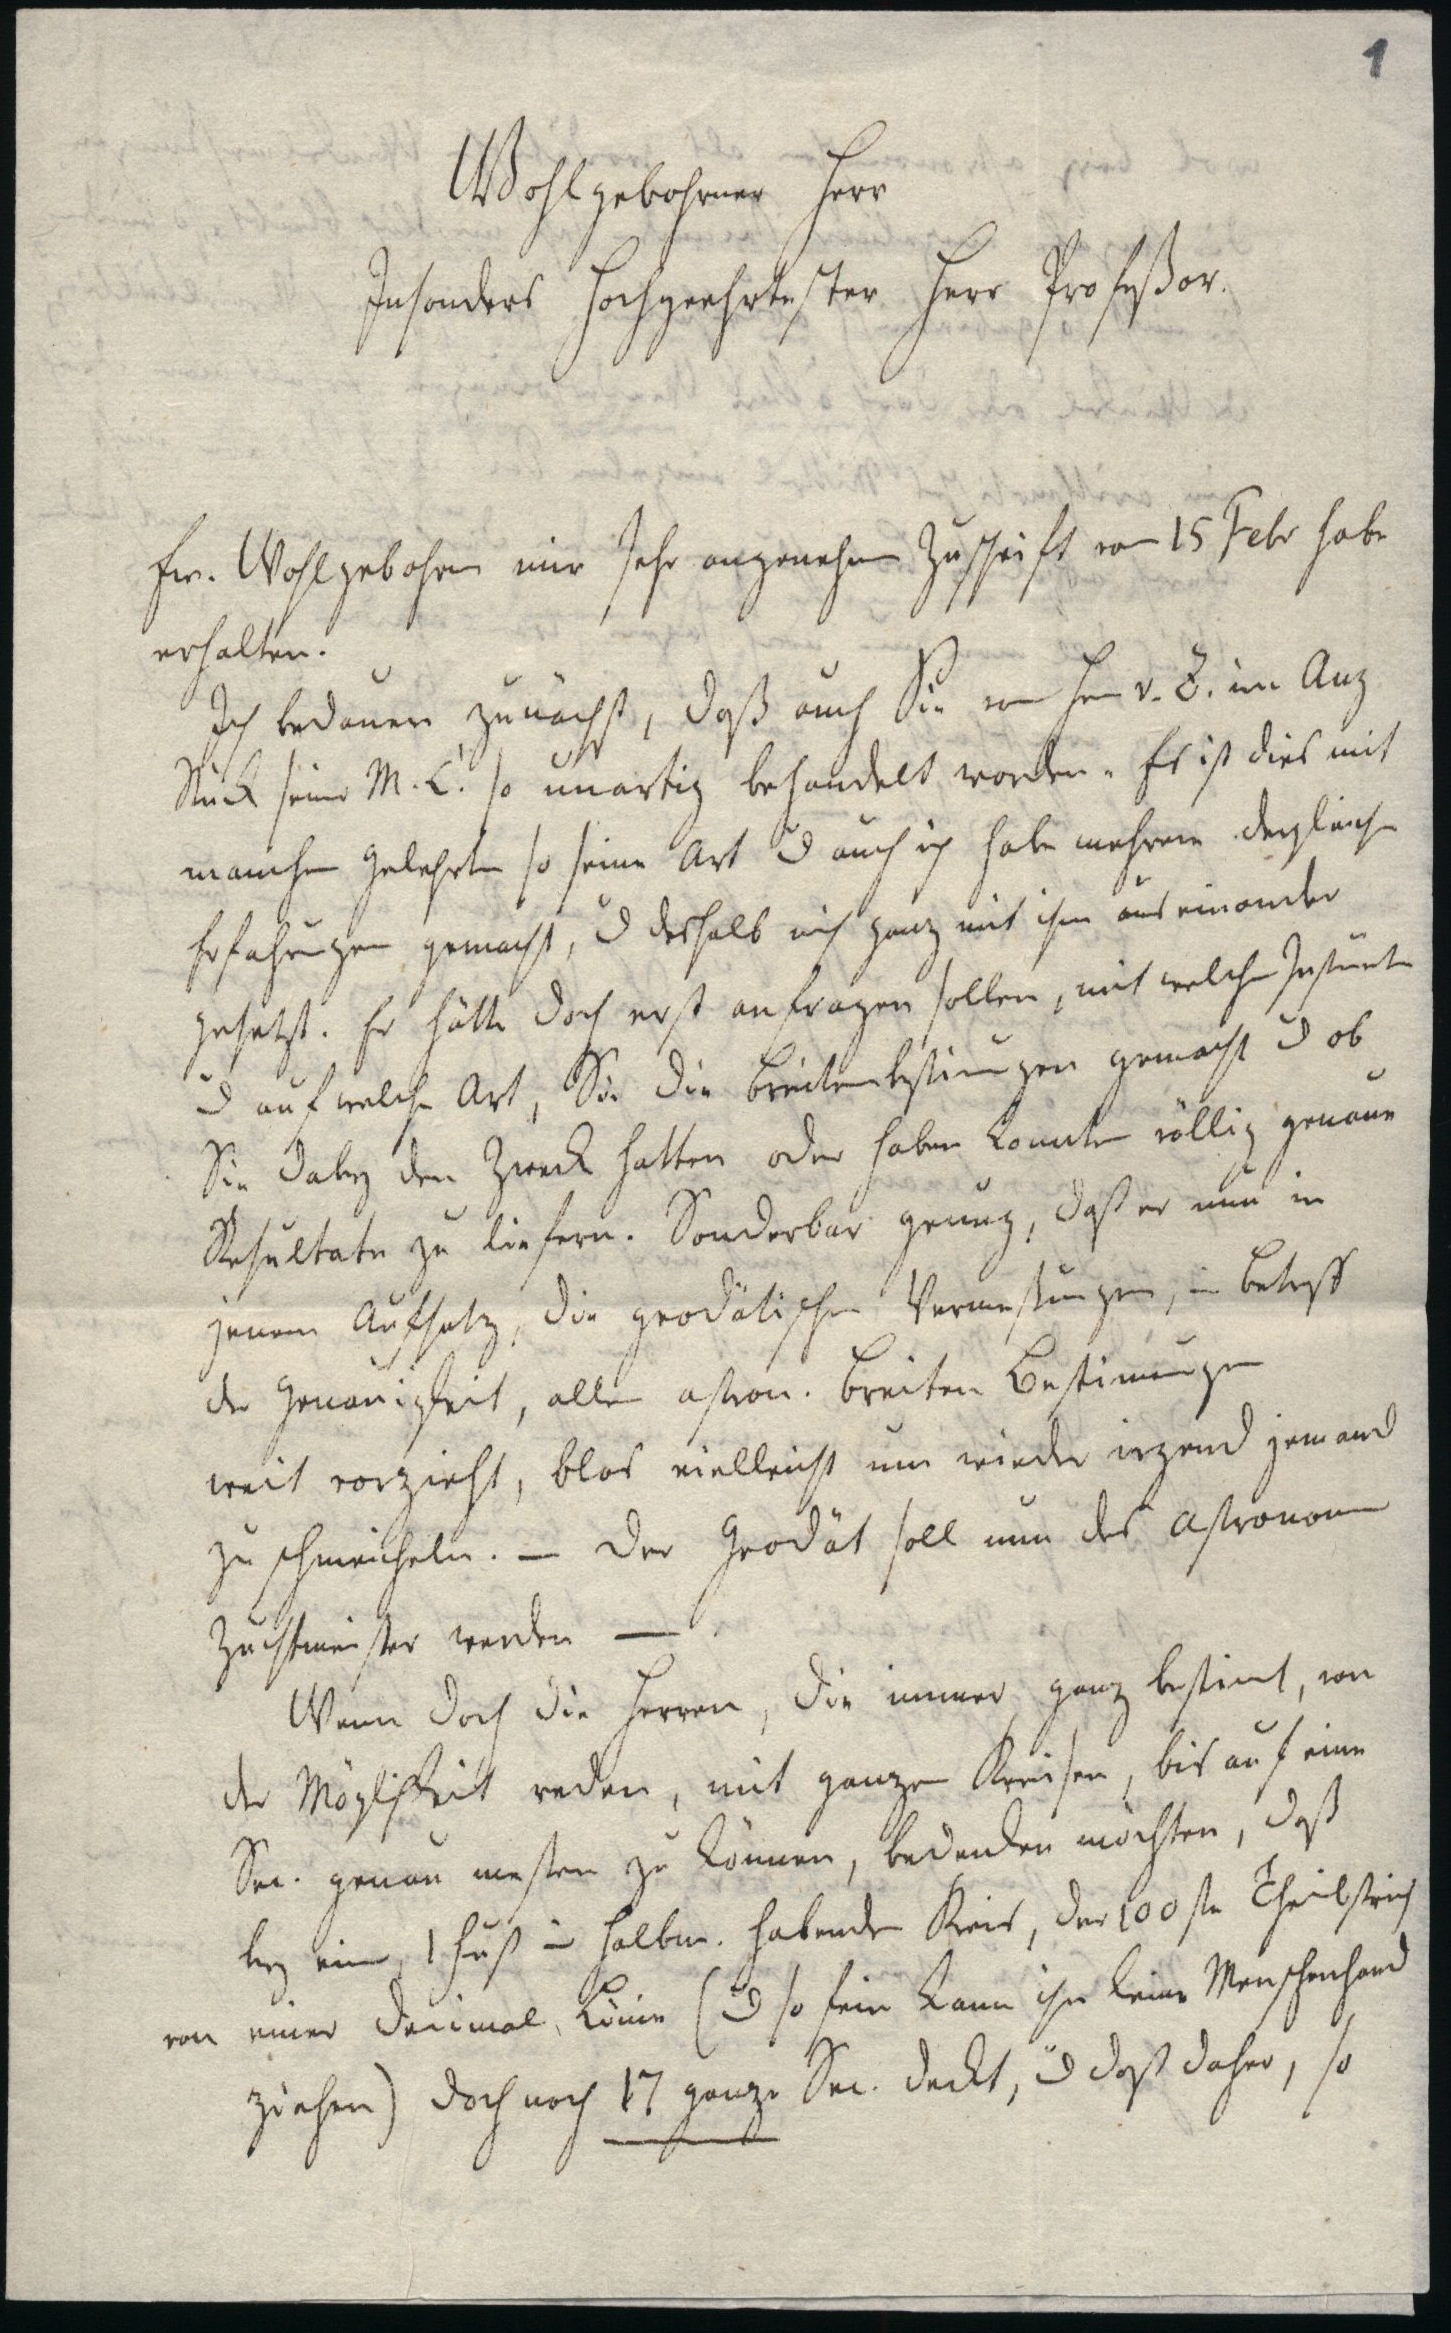 1
Wohlgebohrner Herr
Insonders Hochgeehrtester Herr Profeßor.
Ew. Wohlgebohren mir sehr angenehme Zuschrift vom 15 Febr habe
erhalten.
Ich bedauere zunächst, daß auch Sie von Hrn v. Z. im Aug
Stück seiner M. C. so unartig behandelt worden. Es ist dies mit
manchen Gelehrten so seine Art u auch ich habe mehrere dergleichen
Erfahrungen gemacht, u deshalb mich ganz mit ihm aus einander
gesetzt. Er hätte doch erst anfragen sollen, mit welchen Instrumten
u auf welche Art, Sie die Breitenbestimungen gemacht u ob
Sie dabey den Zweck hatten oder haben konnten völlig genaue
Resultate zu liefern. Sonderbar genug, daß er nun in
jenem Aufsatz, die geodätischen Vermeßungen, in Betreff
der Genauigkeit, allen astron. Breiten Bestimungen
weit vorzieht, blos vielleicht um wieder irgend jemand
zu schmeicheln. — Der Geodät soll nun des Astronomen
Zuchtmeister werden —
Wenn doch die Herren, die immer ganz bestimt, von
der Möglichkeit reden, mit ganzen Kreisen, bis auf eine
Sec. genau meßen zu können, bedenken möchten, daß
bey einem 1 Fuß im Halbm. habenden Kreis, der 100ste Theilstrich
von einer Decimal Linie (u so fein kann ihn keine Menschenhand
ziehen) doch noch 17 ganze Sec. deckt, u daß daher, so